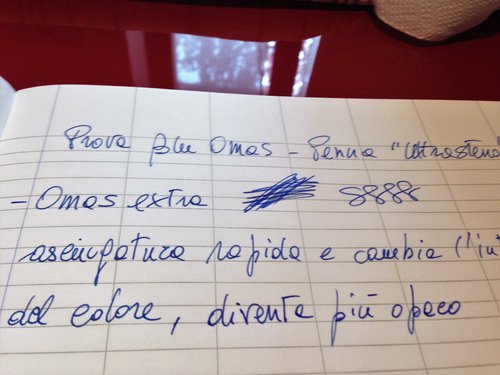 Prova blu Omas - Penna "Ultrasténo
- Omas extra 8888
asciugatura rapida e cambia l'in
del colore, diventa più opaco